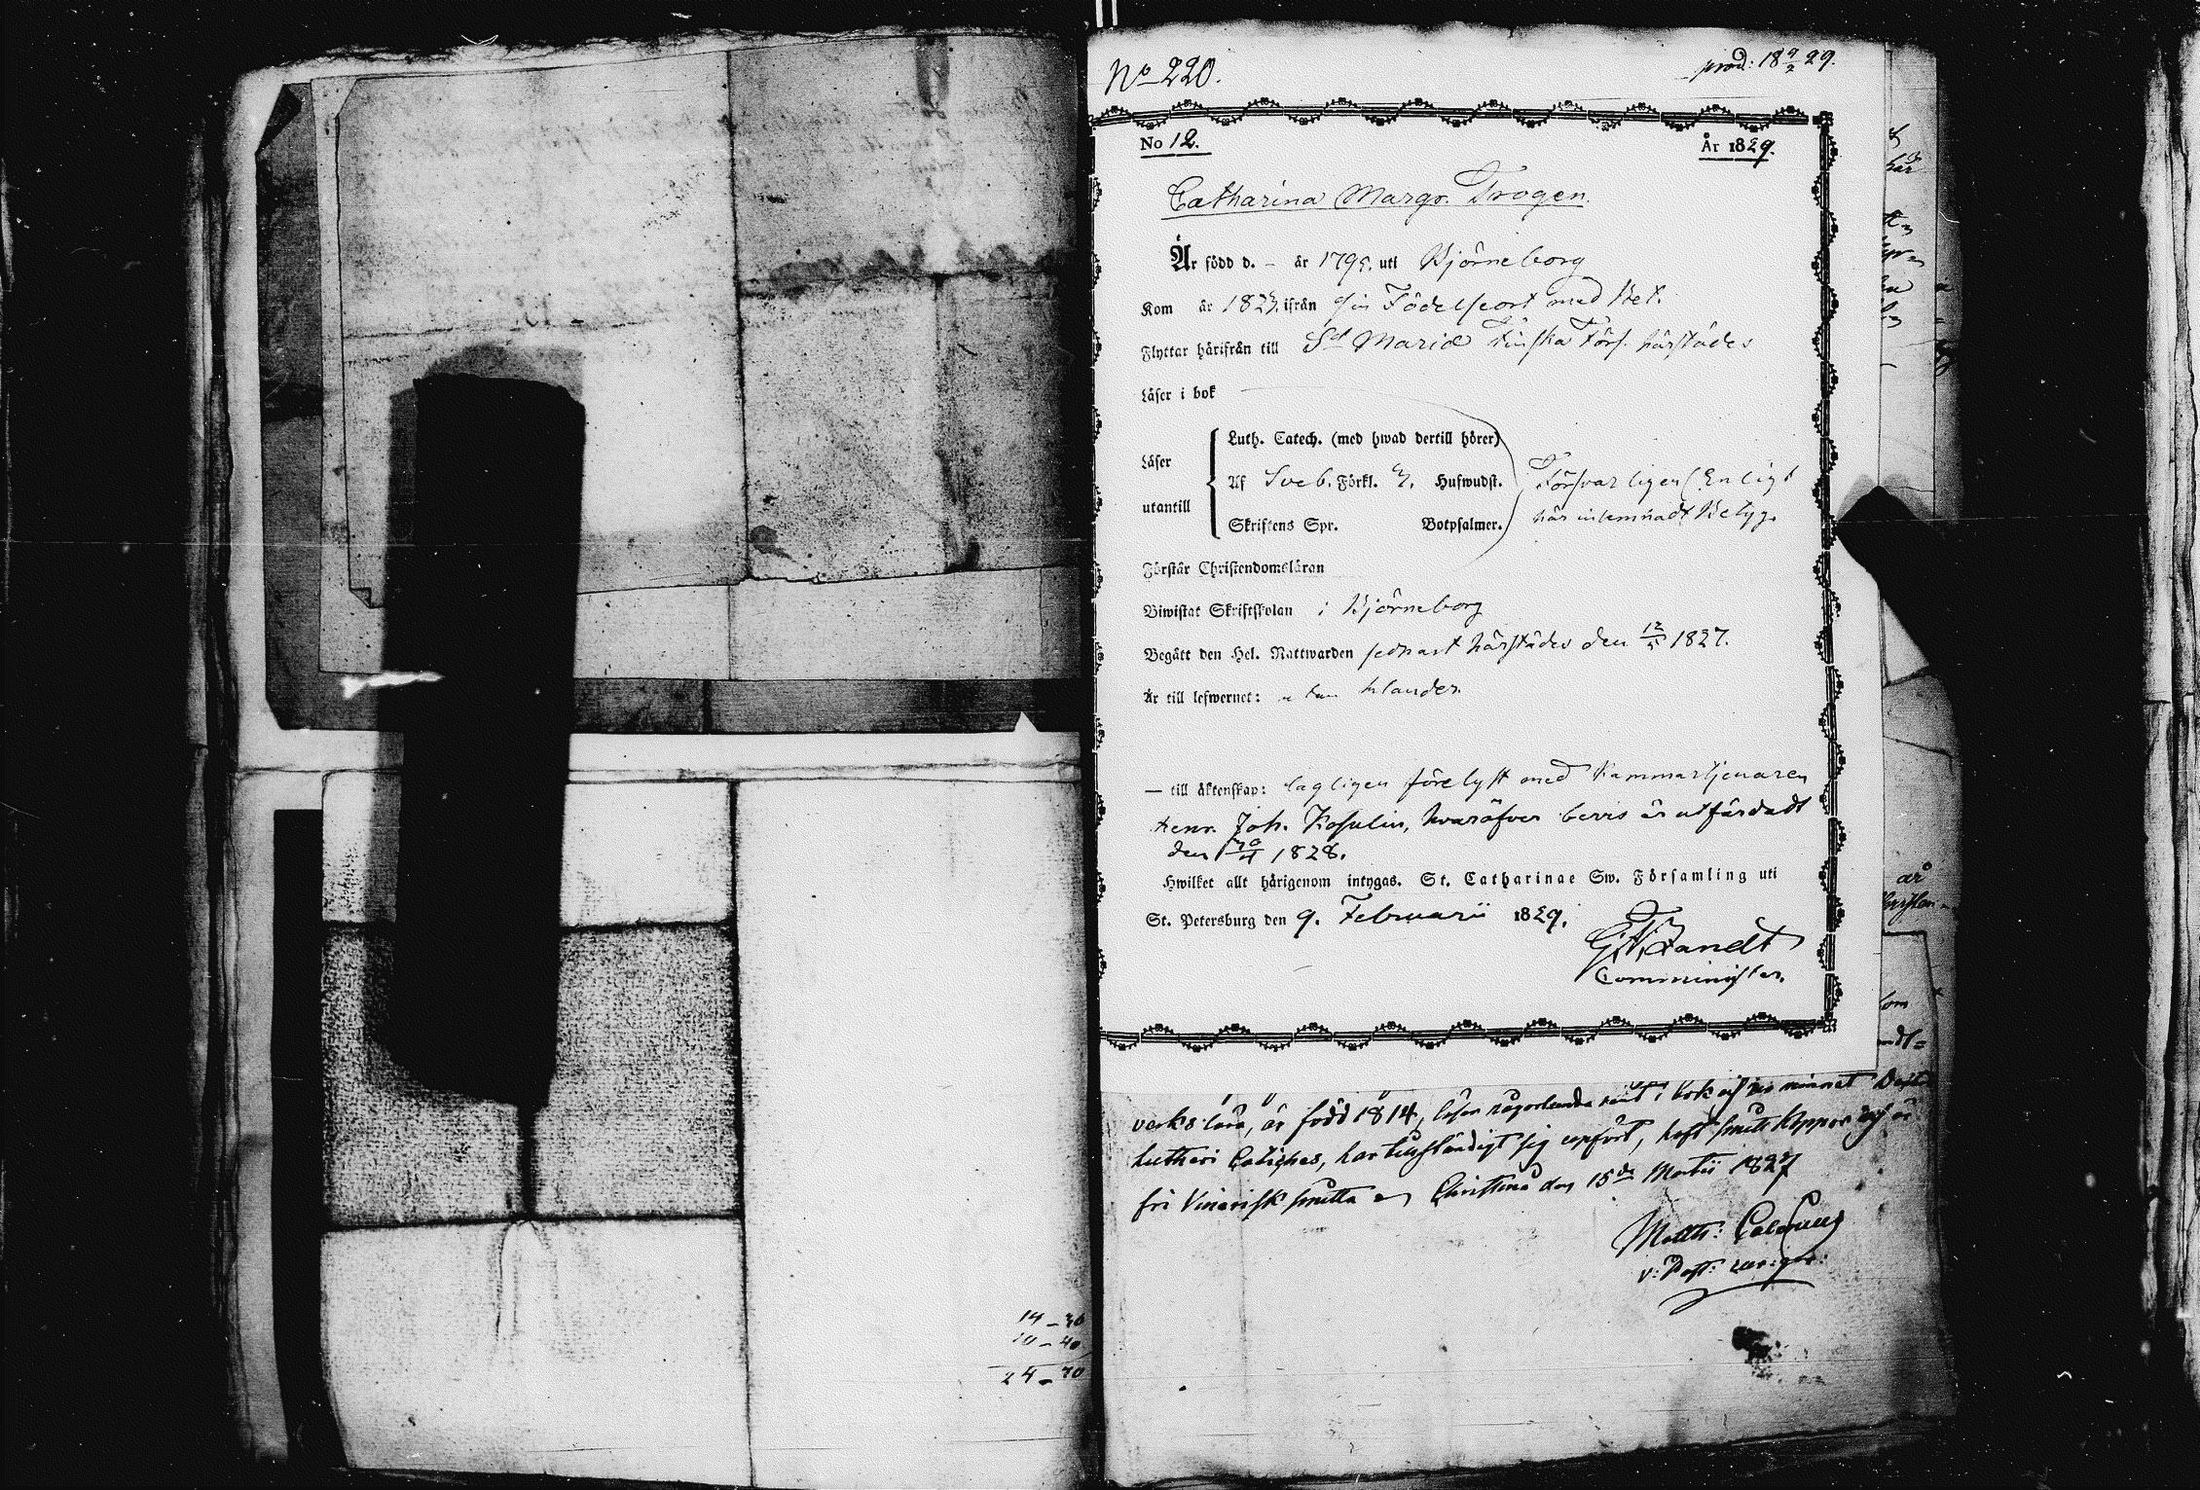 14 - 30
10 - 40
24 - 70
No 220.
prod: 18 9/2 29.
No 12.
År 1829.
Catharina Margr. Trogen.
Är född d. – år 1795. uti Björneborg
Kom år 1823. ifrån sin Födelseort med Bet.
Flyttar härifrån till St Mariæ Finska Förs. härstädes
Läser i bok
Läser utantill
Luth. Catech. (med hwad dertill hörer)
Af Sveb. Förkl. 3. Hufwudst.
Skriftens Spr. Botpsalmer.
Försvarligen (Enligt
här inlemnadt Betyg.
Förstår Christendomsläran
Biwistat Skriftskolan i Björneborg
Begått den Hel. Nattwarden sednast härstädes den 12/5 1827.
Är till lefwernet: utan klander.
— till äktenskap: lagligen förelyst med Kammartjenaren
Henr. Joh. Rosulin, hvaröfver bevis är utfärdadt
den 30/4 1828.
Hwilket allt härigenom intygas. St. Catharinae Sw. Församling uti
St. Petersburg den 9. Februarii 1829.
Comminister.
verks lära, är född 1814, läser någorlunda rent i bok och ur minnet
Lutheri Catiches, har anständigt sig uppfört, haft Smitt Koppor och är
fri Vinerisk smitta Christina den 15de Martii 1827
Matth:
v: Past:
år
som